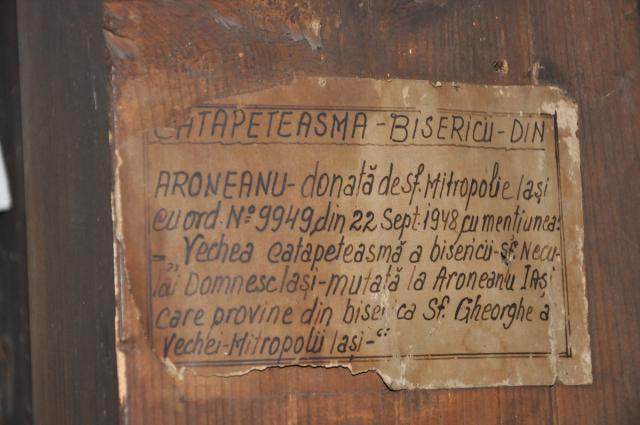 CATAPETEASMA-BISERICII-DIN
ARONEANU-donată de sf. Mitropolie Iași
cu ord. Nº 9949 din 22 Sept. 1948 cu mențiunea:
-„ Vechea catapeteasmă a bisericii-sf. Necu-
lai Domnesc Iași-mutată la Aroneanu Iași
care provine din biserica Sf. Gheorghe a
Vechei-Mitropolii Iași-“